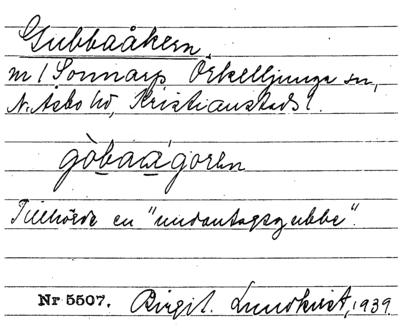 Gubbaåkern.
nr 1 Sonnarp Örkelljunga sn,
N. Åsbo hd, Kristianstads l.
gòbaa´goren
Tillhörde en "undantagsgubbe".
Nr 5507. Birgit Lundkvist, 1939.